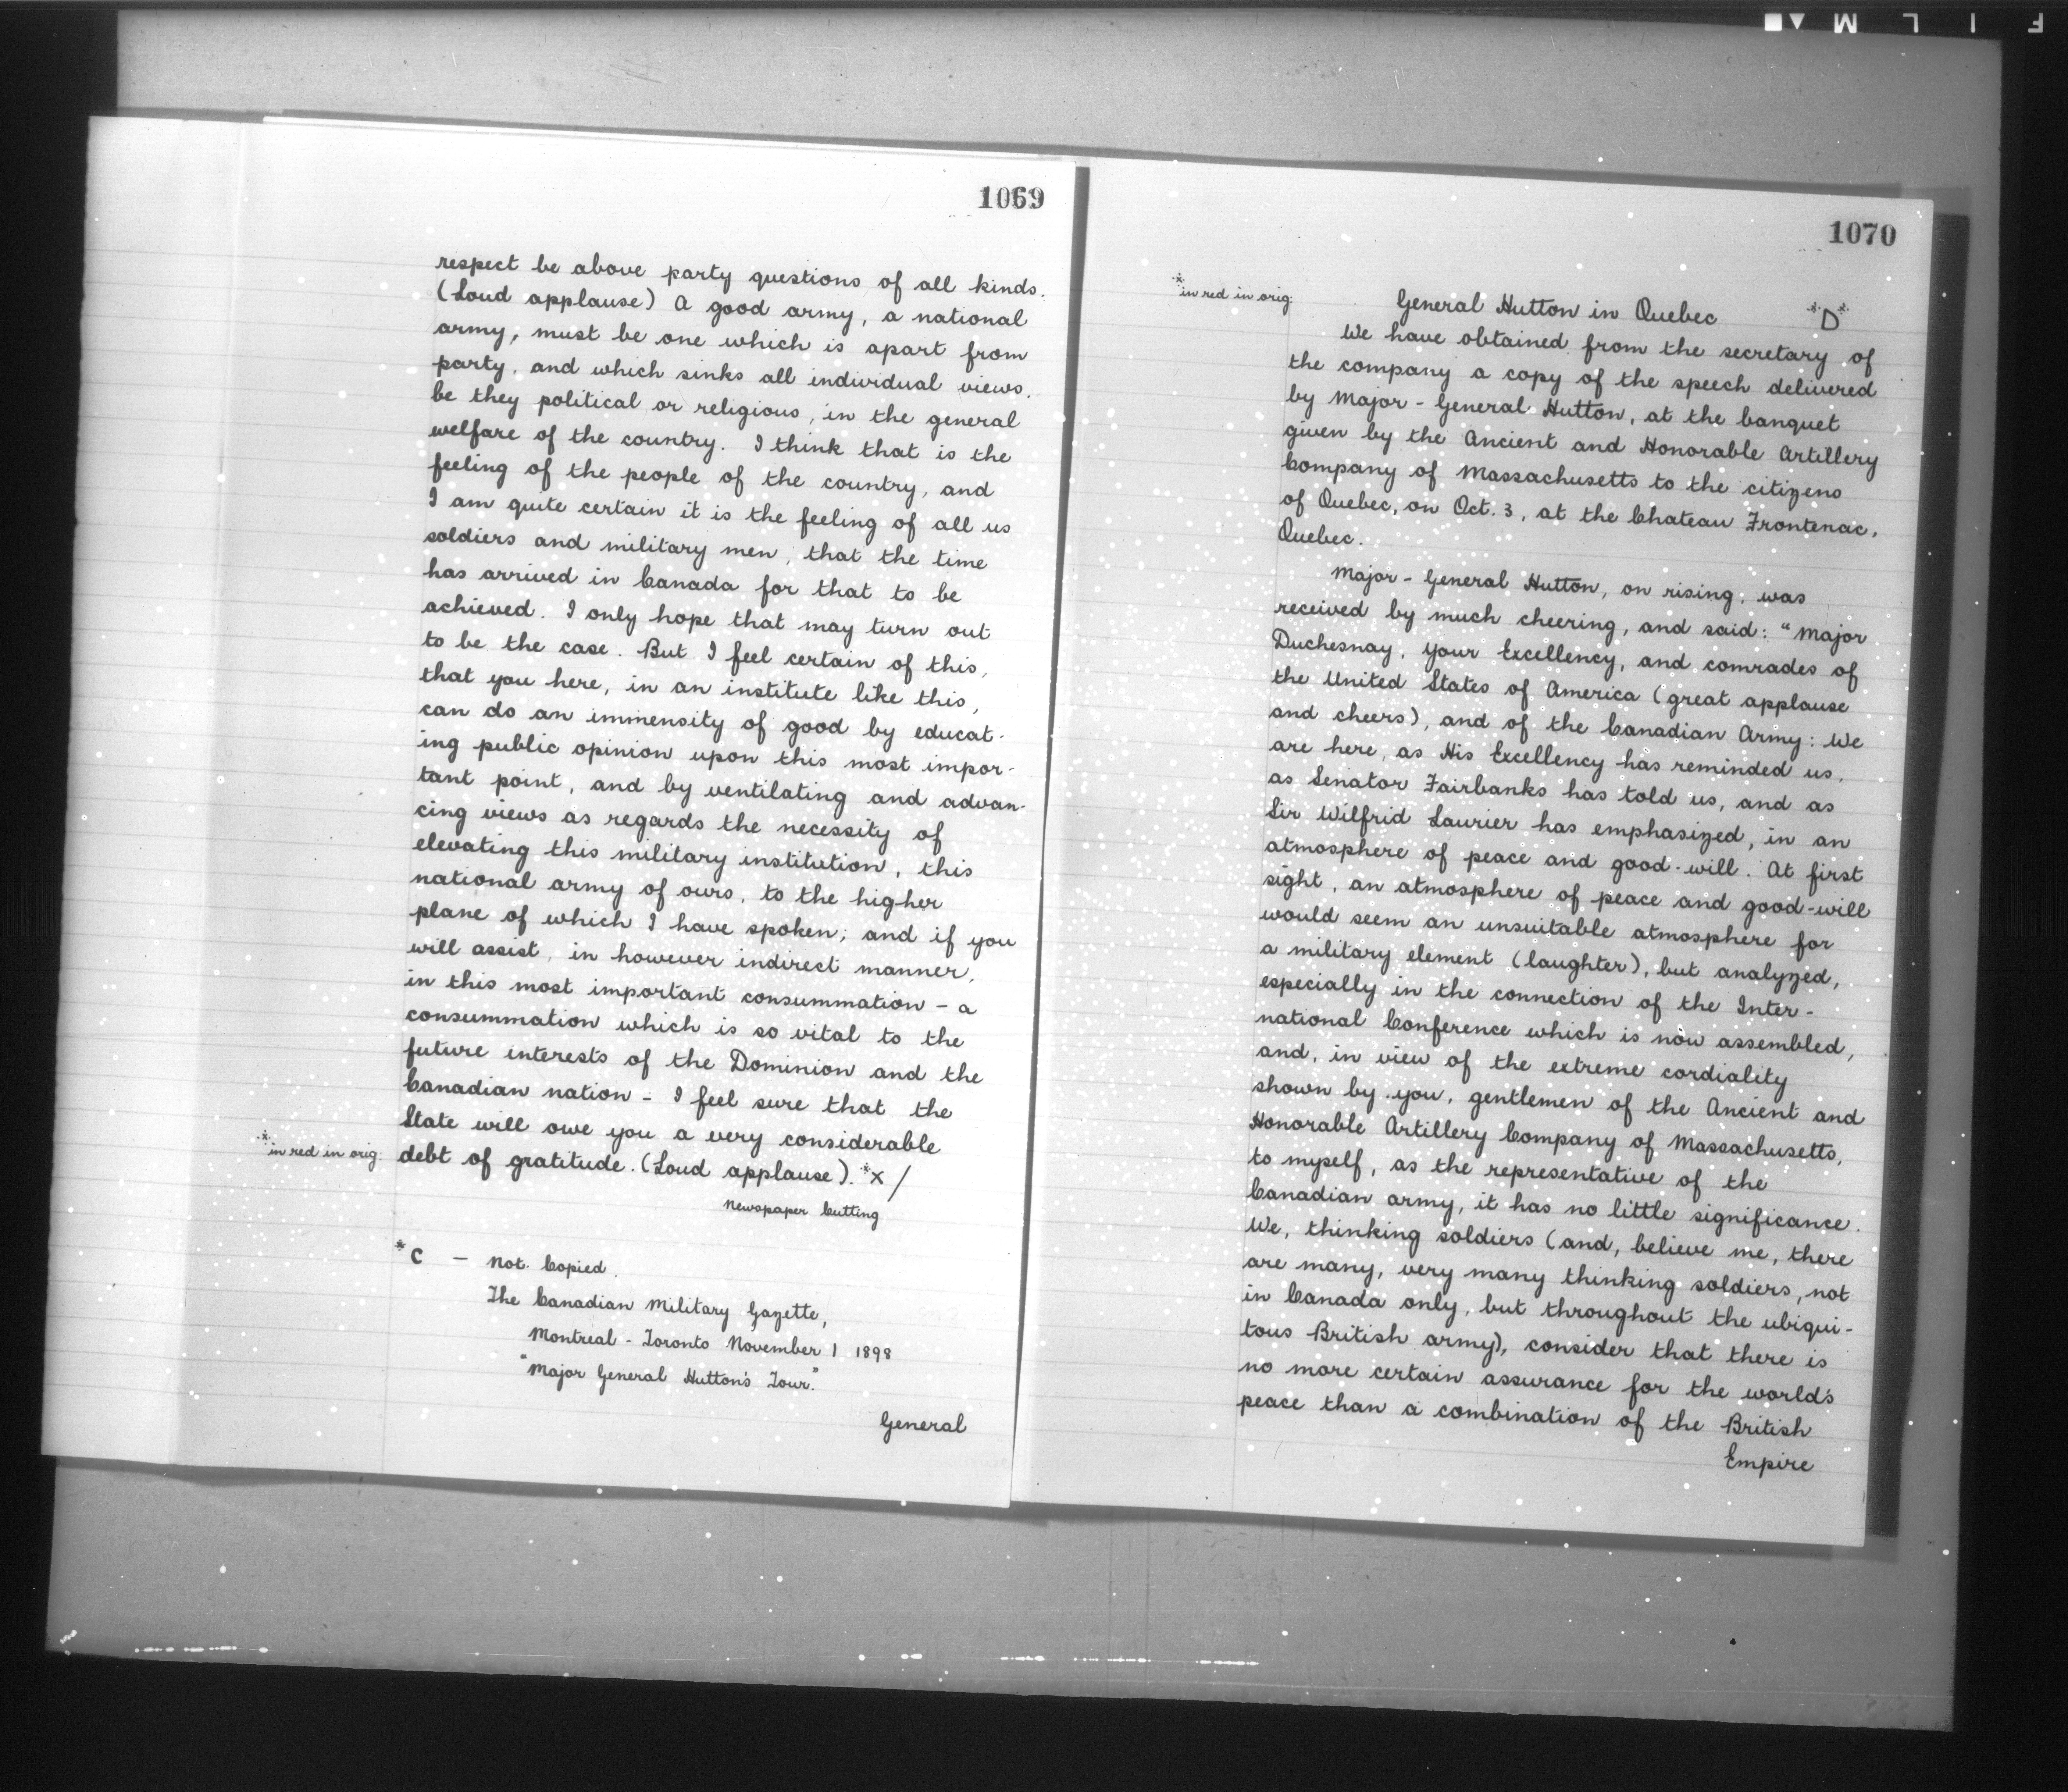 1069
respect be above party questions of all kinds.
(Loud applause) A good army, a national
army, must be one which is apart from
party, and which sinks all individual views,
be they political or religious, in the general
welfare of the country. I think that is the
feeling of the people of the country, and
I am quite certain it is the feeling of all us
soldiers and military men, that the time
has arrived in Canada for that to be
achieved. I only hope that may turn out
to be the case. But I feel certain of this,
that you here, in an institute like this,
can do an immensity of good by educat-
ing public opinion upon this most impor-
tant point, and by ventilating and advan-
cing views as regards the necessity of
elevating this military institution, this
national army of ours, to the higher
plane of which I have spoken; and if you
will assist, in however indirect manner,
in this most important consummation - a
consummation which is so vital to the
future interests of the Dominion and the
Canadian nation - I feel sure that the
State will owe you a very considerable
*in red in orig. debt of gratitude. (Loud applause). *x /
Newspaper Cutting
*C - Not Copied.
The Canadian Military Gazette,
Montreal - Toronto November 1 1898
"Major General Hutton's Tour."
General
1070
*in red in orig. General Hutton in Quebec *D*
We have obtained from the secretary of
the company a copy of the speech delivered
by Major-General Hutton, at the banquet
given by the Ancient and Honorable Artillery
Company of Massachusetts to the citizens
of Quebec, on Oct. 3, at the Chateau Frontenac,
Quebec.
Major-General Hutton, on rising, was
received by much cheering, and said: "Major
Duchesnay, your Excellency, and comrades of
the United States of America (great applause
and cheers), and of the Canadian Army: We
are here, as His Excellency has reminded us,
as Senator Fairbanks has told us, and as
Sir Wilfrid Laurier has emphasized, in an
atmosphere of peace and good-will. At first
sight, an atmosphere of peace and good-will
would seem an unsuitable atmosphere for
a military element (laughter), but analyzed,
especially in the connection of the Inter-
national Conference which is now assembled,
and, in view of the extreme cordiality
shown by you, gentlemen of the Ancient and
Honorable Artillery Company of Massachusetts,
to myself, as the representative of the
Canadian army, it has no little significance.
We, thinking soldiers (and, believe me, there
are many, very many thinking soldiers, not
in Canada only, but throughout the ubiqui-
tous British army), consider that there is
no more certain assurance for the world's
peace than a combination of the British
Empire